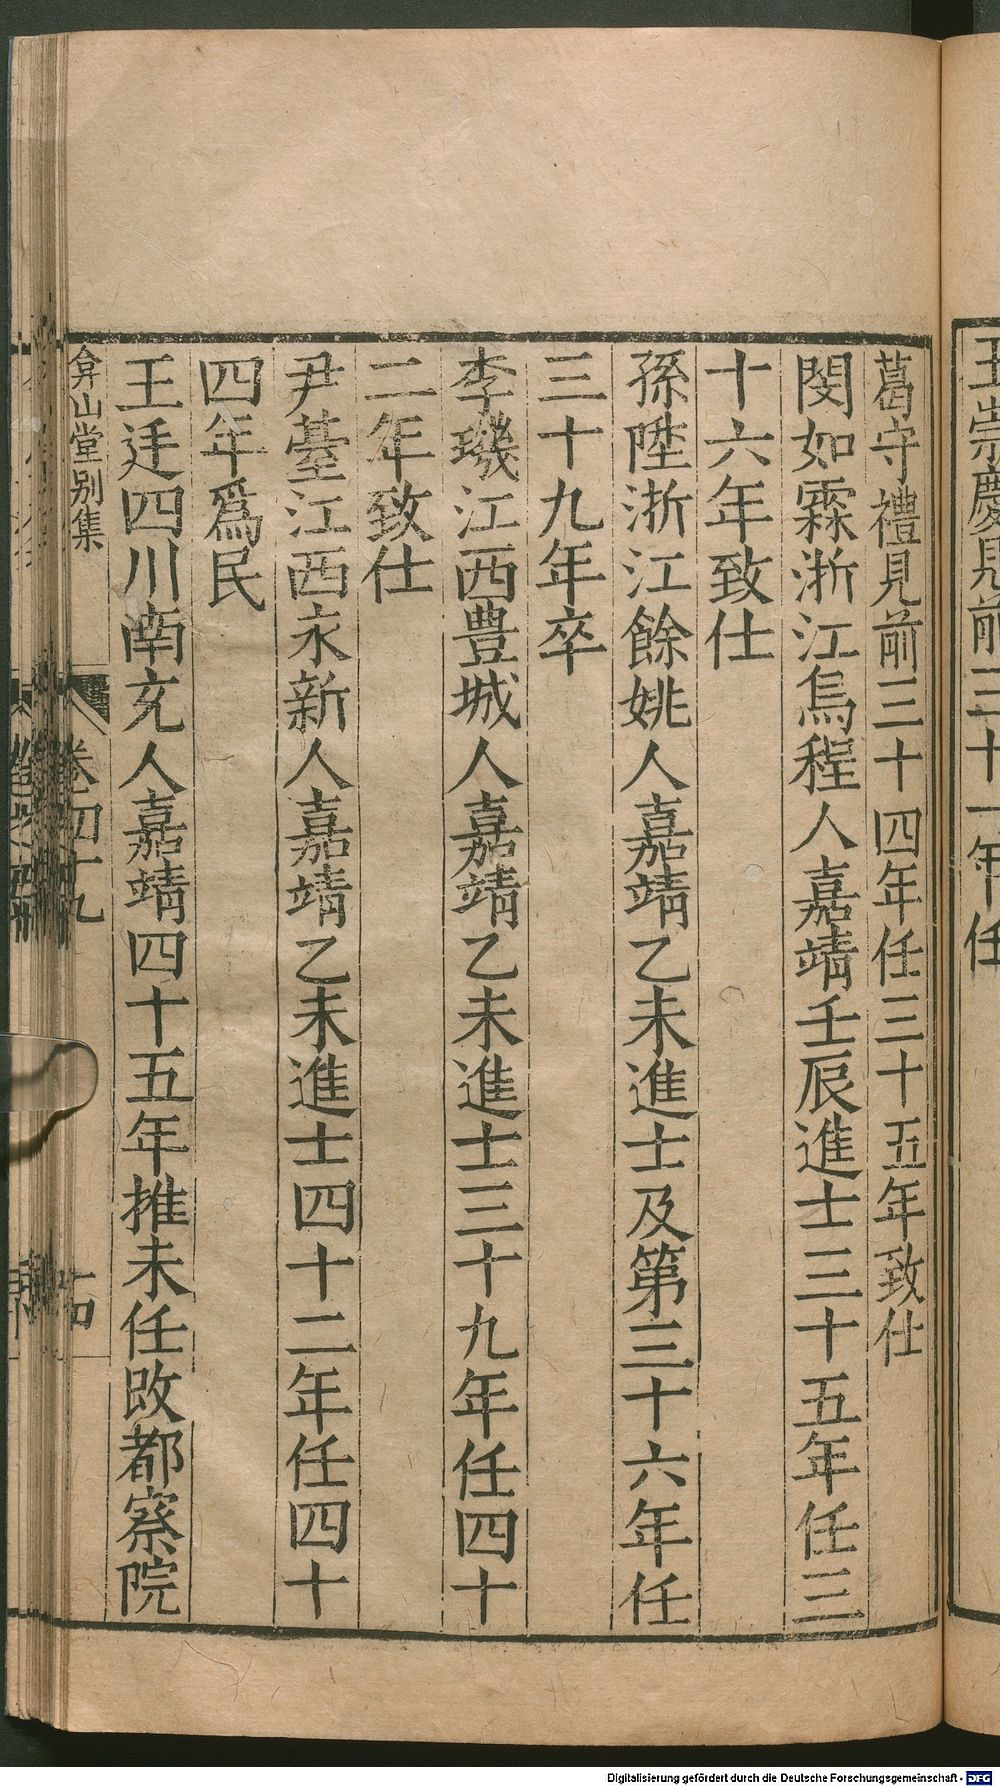 王崇慶見前三十一年任
葛守禮見前三十四年任三十五年致仕
閔如霖浙江烏程人嘉靖壬辰進士三十五年任三
十六年致仕
孫陞浙江餘姚人嘉靖乙未進士及第三十六年任
三十九年卒
李璣江西豊城人嘉靖乙未進士三十九年任四十
二年致仕
尹臺江西永新人嘉靖乙未進士四十二年任四十
四年爲民
王廷四川南充人嘉靖四十五年推未任改都察院
弇山堂别集 卷四十九
Digitalisierung gefördert durch die Deutsche Forschungsgemeinschaft - DFG